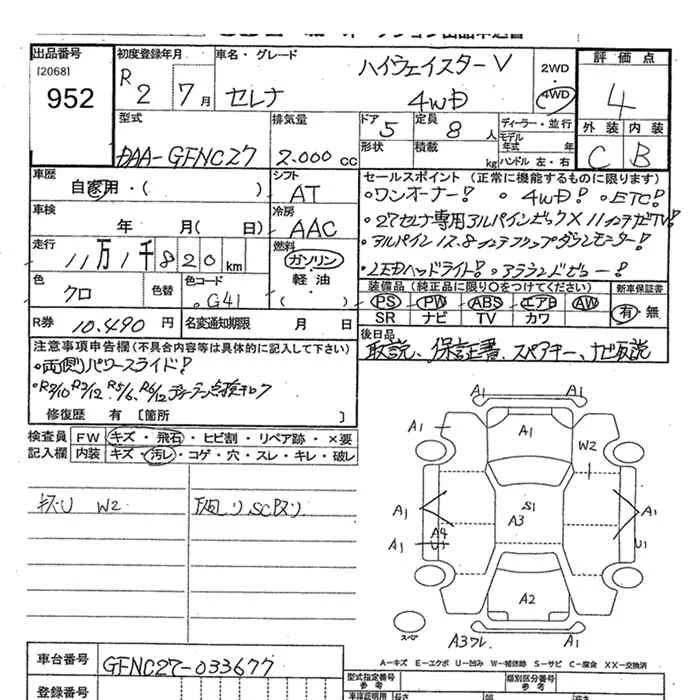 出品番号 初度登録年月 車名・グレード 評価点
[2068] R 2 7月 セレナ ハイウェイスターV 2WD
952 4WD 4WD 4
型式 排気量 ドア 5 定員 8 人 ディーラー・並行 外装 内装
DAA-GFNC27 2.000 cc 形状 積載 kg モデル年式 年 C B
ハンドル 左・右
車歴 自家用・( ) シフト AT
セールスポイント (正常に機能するものに限ります)
・ワンオーナー! ・4WD! ・ETC!
車検 年 月( 日) 冷房 AAC
・27セレナ専用アルパインビックX 11インチナビTV!
走行 11万1千820km 燃料 ガソリン・軽油
・アルパイン12.8インチフリップダウンモニター!
・LEDヘッドライト! ・アラウンドビュー!
色 クロ 色替 色コード G41
装備品 (純正品に限り○をつけてください) 新車保証書
PS PW ABS エアB AW 有・無
SR ナビ TV カワ
R券 10.490 円 名変通知期限 月 日
後日品
取説、保証書、スペアキー、ナビ取説
注意事項申告欄(不具合内容等は具体的に記入して下さい)
・両側パワースライド!
・R2/10 R3/12 R5/6 R6/12
修復歴 有 [箇所 ]
検査員 FW キズ・飛石・ヒビ割・リペア跡・×要
記入欄 内装 キズ・汚レ・コゲ・穴・スレ・キレ・破レ
キズ・U W2
A1
A1 A1
W2
A1 S1 A1
A3
A4
A1 U1 U1
A2
スペア A3フレ A1
A-キズ E-エクボ U-凹み W-補修跡 S-サビ C-腐食 XX-交換済
車台番号 GFNC27-033677 型式指定番号 類別区分番号
参考 参考
登録番号 車庫証明用 長さ 幅 高さ